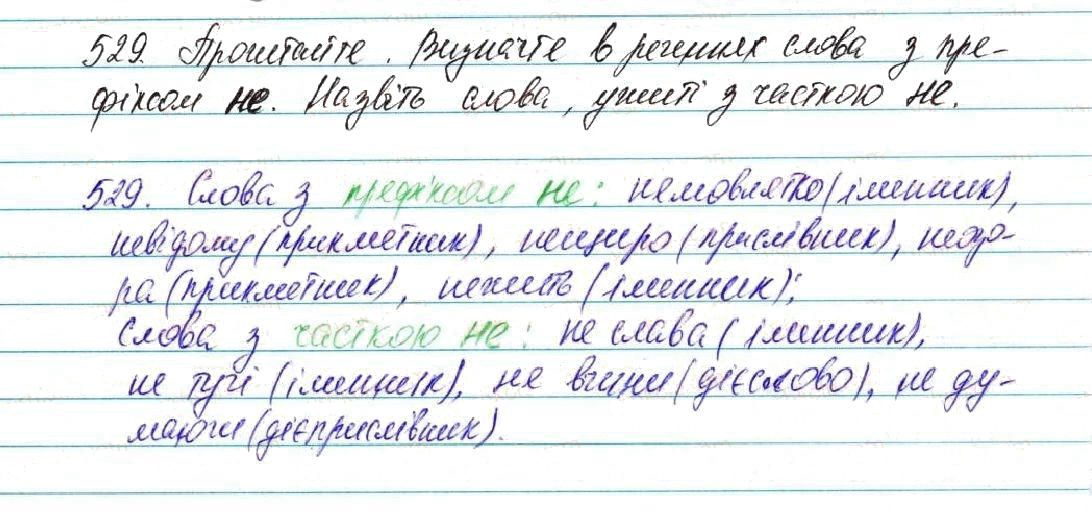 529. Прочитайте. Визначте в реченнях слова з пре-
фіксом не. Назвіть слова, ужиті з часткою не.
529. Слова з префіксом не: немовлятко (іменник),
невідому (прикметник), нещиро (прислівник), недо-
ра (прикметник), нежить (іменник);
Слова з часткою не: не слава (іменник),
не тучі (іменник), не вчини (дієслово), не ду-
маючи (дієприслівник).